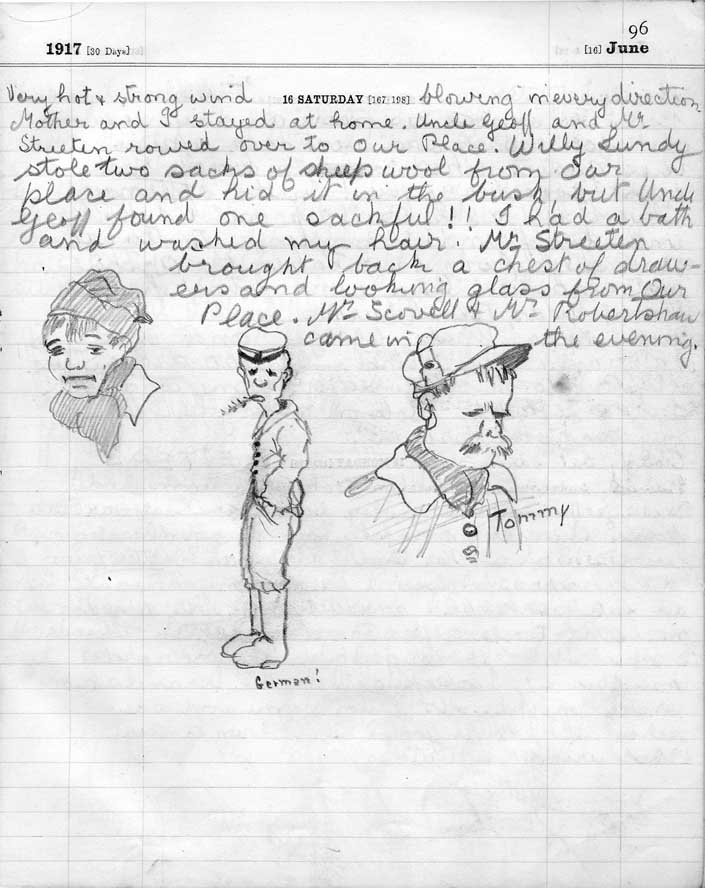 96
1917 [30 Days] [16] June
Very hot & strong wind 16 SATURDAY [167 198] blowing in every direction
Mother and I stayed at home. Uncle Geoff and Mr
Streeten rowed over to Our Place. Willy Sundy
stole two sacks of sheep wool from Our
place and hid it in the bush, but Uncle
Geoff found one sackful!! I had a bath
and washed my hair. Mr Streeten
brought back a chest of draw-
ers and looking glass from Our
Place. Mr Scovell & Mr Robertshaw
came in the evening.
Tommy
German!